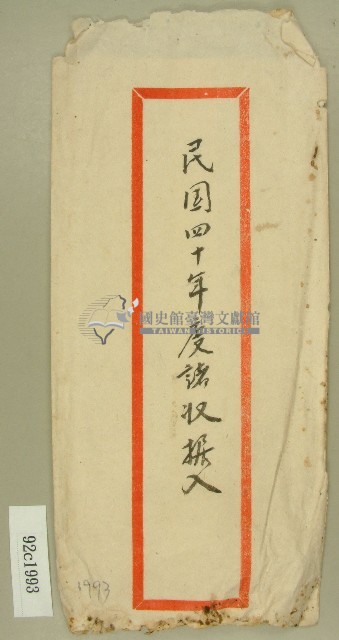 民国四十年度諸收據入
國史館臺灣文獻館
TAIWAN HISTORICA
92c1993
1993